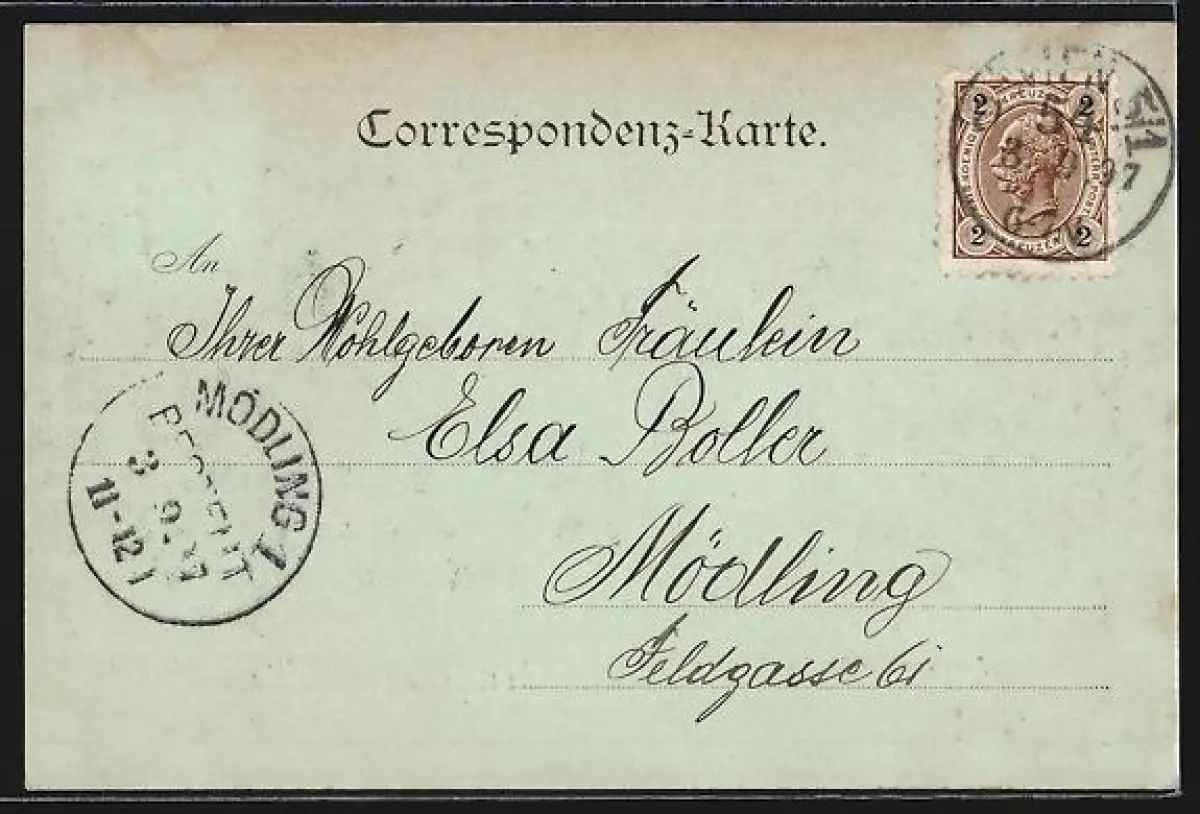 Correspondenz-Karte.
2 KREUZER 2
2 KREUZER 2
WIEN
5/1
3 9 97
An
Ihrer Wohlgeboren Fräulein
Elsa Boller
Mödling
Feldgasse 6
MÖDLING 1
3 9. 97
11-12